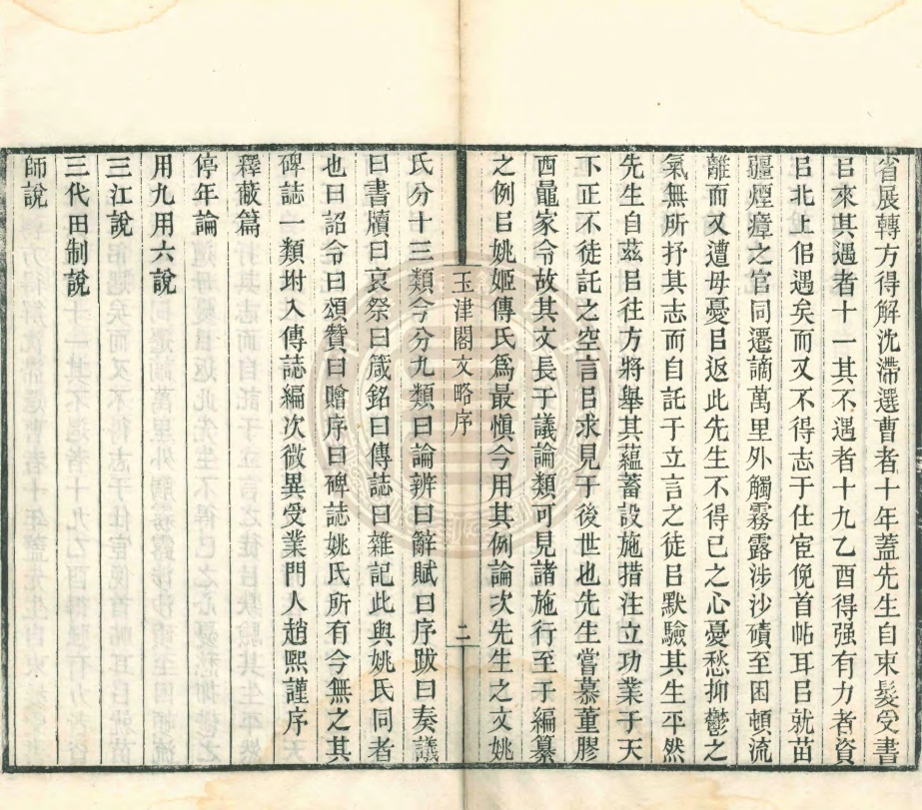 省展轉方得解沈滯選曹者十年蓋先生自束髮受書
㠯來其遇者十一其不遇者十九乙酉得强有力者資
㠯北上佀遇矣而又不得志于仕宦俛首帖耳㠯就苗
疆煙瘴之官同遷謫萬里外觸霧露涉沙磧至困頓流
離而又遭母憂㠯返此先生不得已之心憂愁抑鬱之
氣無所抒其志而自託于立言之徒㠯默驗其生平然
先生自茲㠯往方將舉其蘊蓄設施措注立功業于天
下正不徒託之空言㠯求見于後世也先生嘗慕董膠
西鼂家令故其文長于議論類可見諸施行至于編纂
之例㠯姚姬傳氏爲最愼今用其例論次先生之文姚
玉津閣文略序
二
氏分十三類今分九類曰論辨曰辭賦曰序跋曰奏議
曰書牘曰哀祭曰箴銘曰傳誌曰雜記此與姚氏同者
也曰詔令曰頌贊曰贈序曰碑誌姚氏所有今無之其
碑誌一類坿入傳誌編次微異受業門人趙熙謹序
釋蔽篇
停年論
用九用六說
三江說
三代田制說
師說